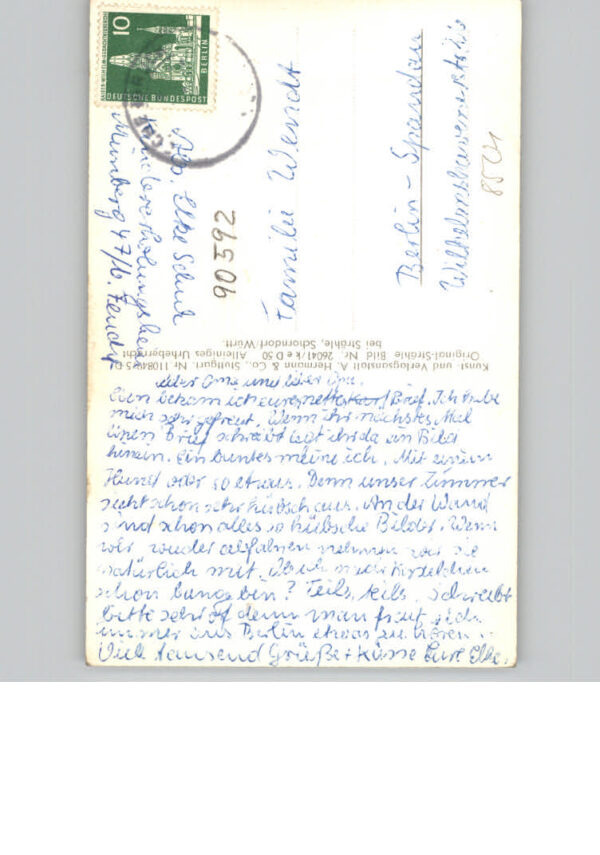 10
KAISER-WILHELM-GEDÄCHTNISKIRCHE
BERLIN
DEUTSCHE BUNDESPOST
Abs. Elke Schul
Kindererholungsheim
90592
Familie Wendt
Berlin-Spandau
8521
Kunst- und Verlagsanstalt A. Hermann & Co., Stuttgart.
Original-Strähle Bild Nr. 26041/k e D 50 Alleiniges Urheberrecht
bei Strähle, Schorndorf/Württ.
Liebe Oma und lieber Opa.
bekam ich euren netten Brief. Ich habe
mich sehr gefreut. Wenn ihr nächstes Mal
einen Brief schreibt legt ihr da ein Bild
hinein. Ein buntes meine ich. Mit einem
Hund oder so etwas. Denn unser Zimmer
sieht schon sehr hübsch aus. An der Wand
sind schon alles so hübsche Bilder. Wenn
wir wieder abfahren nehmen wir sie
natürlich mit. Ob ich mich
schon bin? Teils, teils. Schreibt
bitte sehr oft denn man freut sich
immer aus Berlin etwas zu hören.
Viele tausend Grüße + Küsse Eure Elke.